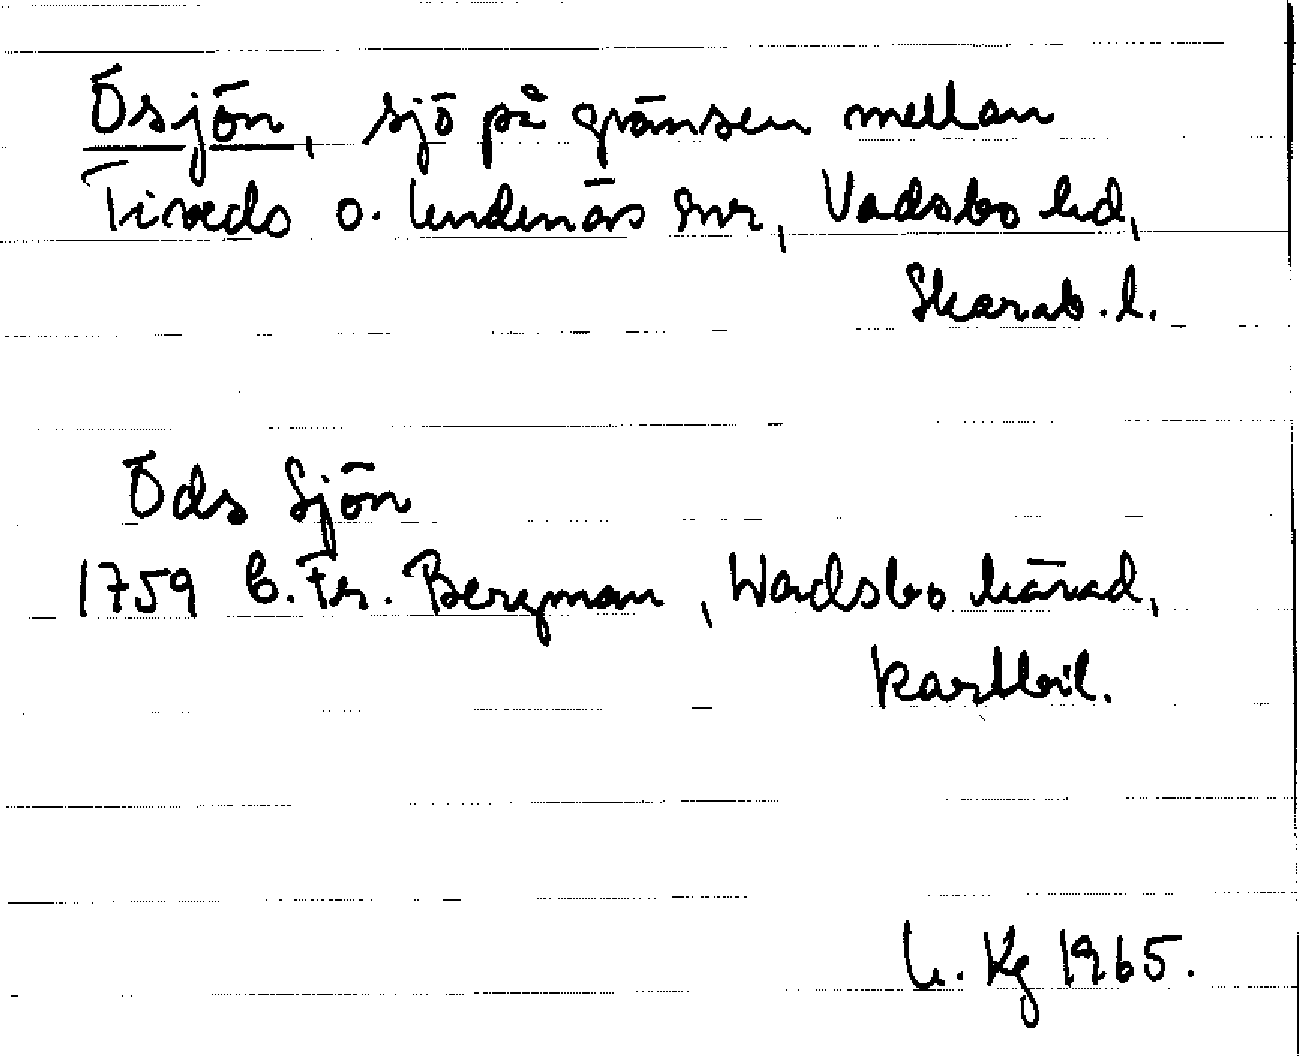 Ösjön, sjö på gränsen mellan
Tiveds o. Undenäs snr, Vadsbo hd,
Skarab. l.
Öds Sjön
1759 C. Fr. Bergman, Wadsbo härad,
kartbil.
Kg 1965.